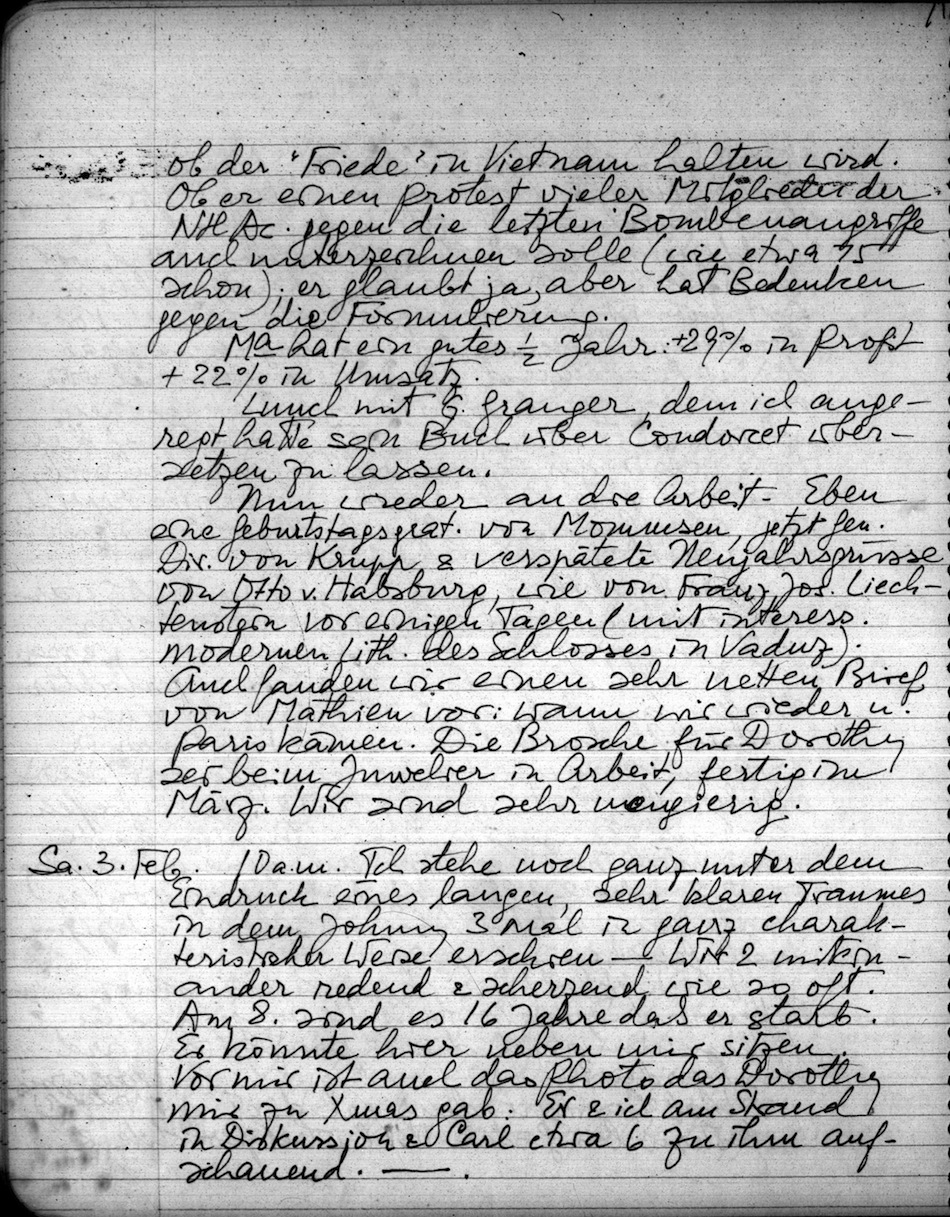 ob der 'Friede' in Vietnam halten wird.
Ob er einen Protest vieler Mitglieder der
N At Ac. gegen die letzten Bombenangriffe
auch unterzeichnen solle (wie etwa 75
schon); er glaubt ja, aber hat Bedenken
gegen die Formulierung.
Ma hat ein gutes ½ Jahr: +29% in Profit
+22% in Umsatz.
Lunch mit G. Granger, dem ich ange-
regt hatte sein Buch über Condorcet über-
setzen zu lassen.
Nun wieder an die Arbeit - Eben
eine Geburtstagsgrat. von Mommsen, jetzt Gen.
Dir. von Krupp & verspätete Neujahrsgrüsse
von Otto v. Habsburg, wie von Franz Jos. Liech-
tenstein vor einigen Tagen (mit interess.
modernen Lith. des Schlosses in Vaduz).
Auch fanden wir einen sehr netten Brief
von Mathieu vor: wann wir wieder n.
Paris kämen. Die Brosche für Dorothy
sei beim Juwelier in Arbeit, fertig im
März. Wir sind sehr neugierig.
Sa. 3. Feb. 10 a.m. Ich stehe noch ganz unter dem
Eindruck eines langen, sehr klaren Traumes
in dem Johnny 3 mal in ganz charak-
teristischer Weise erschien — Wir 2 mitein-
ander redend & scherzend wie so oft.
Am 8. sind es 16 Jahre dass er starb.
Er könnte hier neben mir sitzen.
Vor mir ist auch das Photo das Dorothy
mir zu Xmas gab: Er & ich am Strand
in Diskussion & Carl etwa 6 zu ihm auf-
schauend. —.